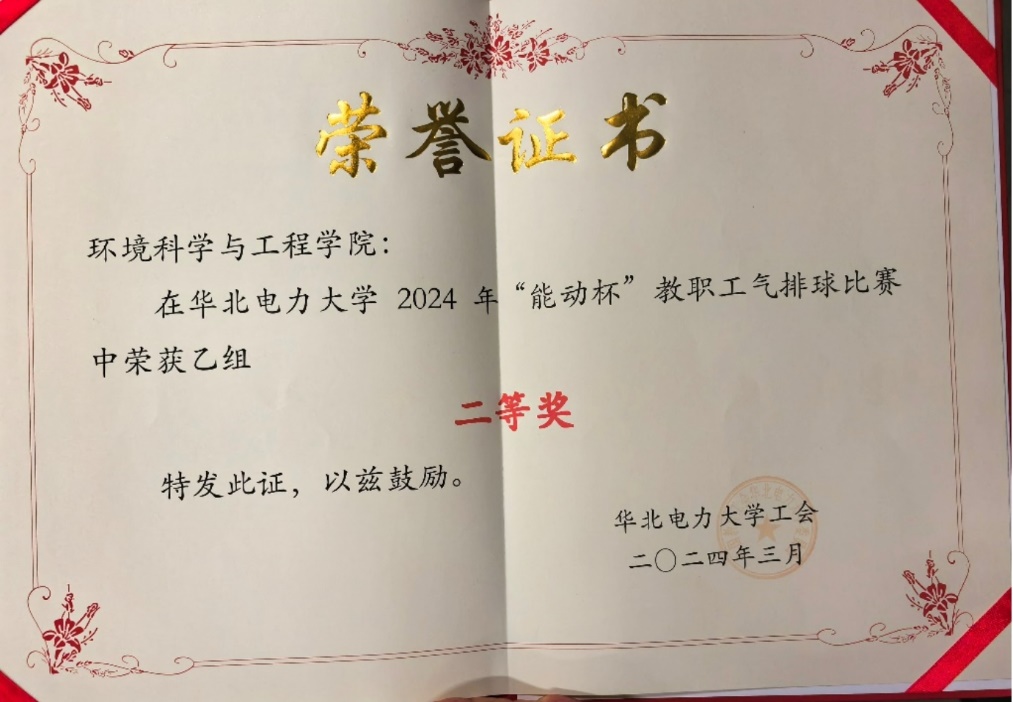 荣誉证书
环境科学与工程学院：
在华北电力大学 2024 年“能动杯”教职工气排球比赛
中荣获乙组
二等奖
特发此证，以兹鼓励。
华北电力大学工会
二〇二四年三月